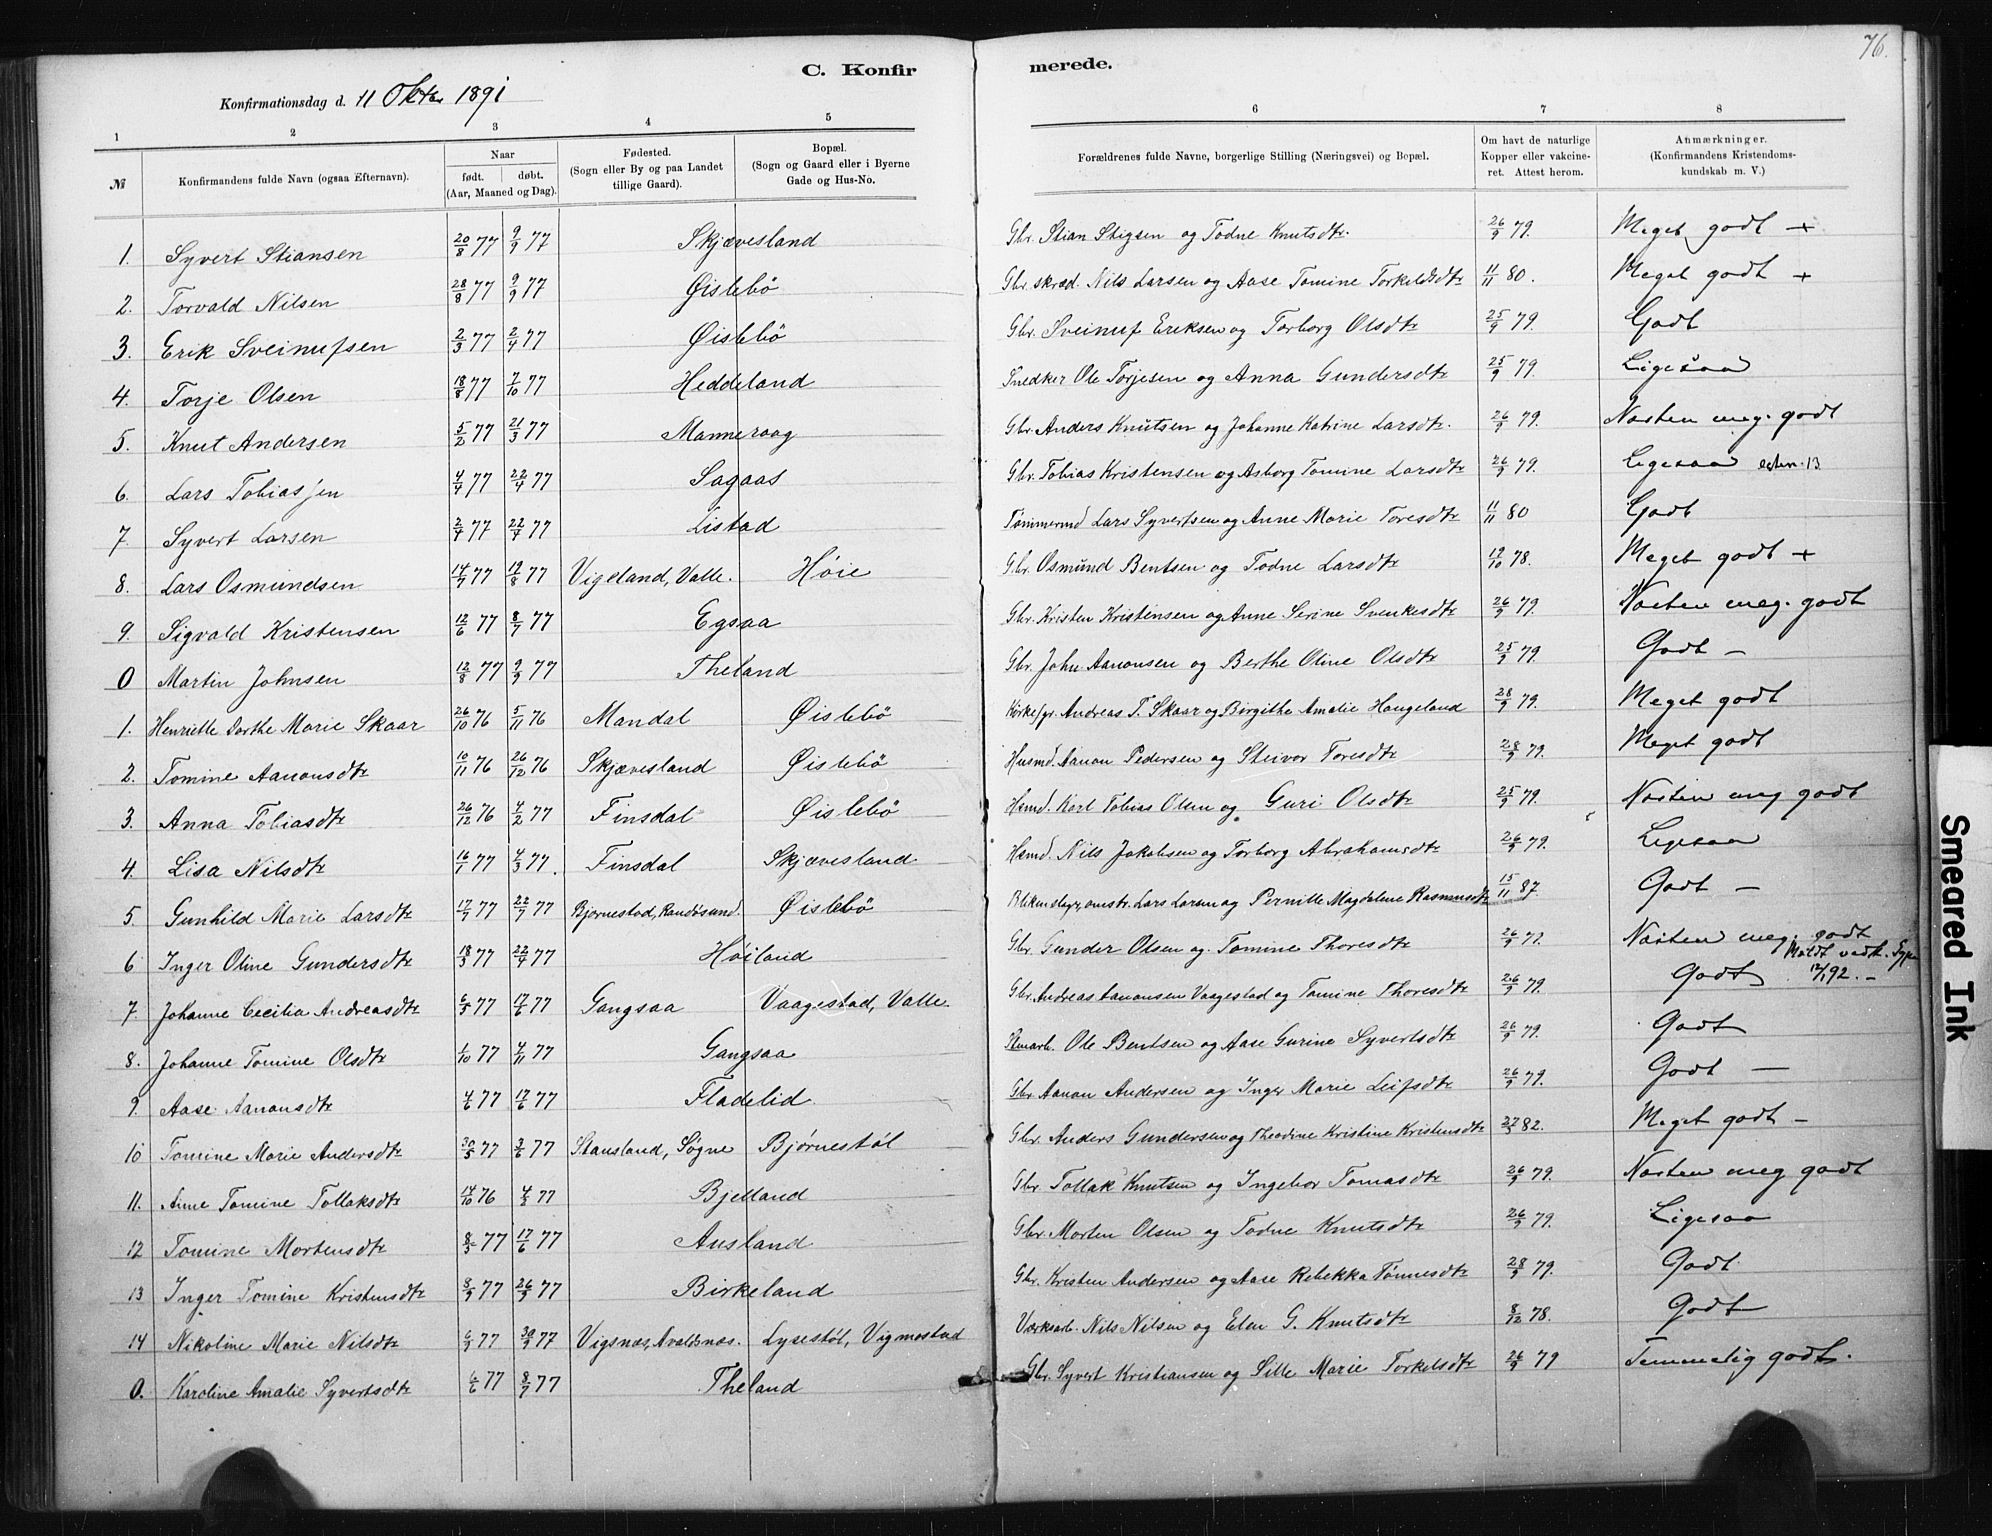 76.
C. Konfirmerede.
Konfirmationsdag d. 11 Oktbr 1891
1 2 3 4 5 6 7 8
№ | Konfirmandens fulde Navn (ogsaa Efternavn). | Naar født. døbt. (Aar, Maaned og Dag). | Fødested. (Sogn eller By og paa Landet tillige Gaard). | Bopæl. (Sogn og Gaard eller i Byerne Gade og Hus-No. | Forældrenes fulde Navne, borgerlige Stilling (Næringsvei) og Bopæl. | Om havt de naturlige Kopper eller vakcineret. Attest herom. | Anmærkninger. (Konfirmandens Kristendomskundskab m. V.)
1. Syvert Stiansen 20/8 77 9/9 77 Skjævesland Gbr. Stian Stigsen og Todne Knutsdtr. 26/9 79. Meget godt +
2. Torvald Nilsen 28/8 77 9/9 77 Øislebö Gbr. skræd. Nils Larsen og Aase Tomine Torkeldsdtr 11/11 80. Meget godt +
3. Erik Sveinufsen 2/3 77 2/4 77 Øislebö Gbr. Sveinuf Eriksen og Torborg Olsdtr 25/9 79. Godt
4. Torje Olsen 18/8 77 7/10 77 Heddeland Snedker Ole Torjesen og Anna Gundersdtr 25/9 79. Ligesaa
5. Knut Andersen 5/2 77 21/3 77 Manneraag Gbr. Anders Knutsen og Johanne Katrine Larsdtr. 26/9 79. Næsten meg. godt
6. Lars Tobiassen 4/4 77 22/4 77 Sagaas Gbr. Tobias Kristensen og Asborg Tomine Larsdtr 26/9 79. Ligesaa
7. Syvert Larsen 2/4 77 22/4 77 Listad Tømmermd Lars Syvertsen og Anne Marie Toresdtr 11/11 80 Godt
8. Lars Osmundsen 14/7 77 19/8 77 Vigeland, Valle. Høie Gbr. Osmund Bentsen og Todne Larsdtr 19/10 78. Meget godt +
9. Sigvald Kristensen 12/6 77 8/7 77 Egsaa Gbr. Kristen Kristensen og Anne Serine Svenkesdtr 26/9 79. Næsten meg. godt
0 Martin Johnsen 12/8 77 9/9 77 Theland Gbr. John Aanonsen og Berthe Oline Olsdtr 25/9 79. Godt –
1. Henriette Dorthe Marie Skaar 26/10 76 5/11 76 Mandal Øislebö Kirkesgr. Andreas T. Skaar og Birgithe Amalie Haugeland 28/9 79. Meget godt
2. Tomine Aanonsdtr 10/11 76 26/12 76 Skjævesland Øislebö Husmd. Aanon Pedersen og Steivor Toresdtr 28/9 79. Meget godt
3. Anna Tobiasdtr 26/12 76 4/2 77 Finsdal Øislebö Hsmd. Karl Tobias Olsen og Guri Olsdtr 25/9 79. Næsten meg godt
4. Lisa Nilsdtr 16/1 77 4/3 77. Finsdal Skjævesland Hsmd. Nils Jakobsen og Torborg Abrahamsdtr 26/9 79. Ligesaa
5. Gunhild Marie Larsdtr 17/7 77 22/7 77 Bjørnestad, Randøsund. Øislebö Lars Larsen og Pernille Magdalene Rasmusdtr 15/11 87. Godt –
6 Inger Oline Gundersdtr 18/3 77 22/4 77 Høiland Gbr. Gunder Olsen og Tomine Thoresdtr 26/9 79. Næsten meg. godt
7. Johanne Cecilia Andreasdtr 6/5 77 17/6 77 Gangsaa Vaagestad, Valle. Gbr. Andreas Aanonsen Vaagestad og Tomine Thoresdtr 26/9 79. Godt 12/1 92. –
8. Johanne Tomine Olsdtr 1/10 77 4/11 77 Gangsaa Ole Bentsen og Aase Gurine Syvertsdtr 26/9 79. Godt
9. Aase Aanonsdtr 4/6 77 17/6 77 Fladelid Gbr. Aanon Andersen og Inger Marie Leifsdtr 26/9 79. Godt –
10 Tomine Marie Andersdtr 30/5 77 3/6 77 Stausland, Søgne Bjørnestøl Gbr. Anders Gundersen og Theodine Kristine Kristensdtr 27/5 82. Meget godt –
11. Anne Tomine Tollaksdtr 14/10 76 4/3 77 Bjelland Gbr. Tollak Knutsen og Ingebor Tomasdtr 26/9 79. Næsten meg godt
12 Tomine Mortensdtr 8/5 77 17/6 77 Ausland Gbr. Morten Olsen og Todne Knutsdtr 26/9 79. Ligesaa
13 Inger Tomine Kristensdtr 8/9 77 26/9 77 Birkeland Gbr. Kristen Andersen og Aase Rebekka Tønnesdtr 28/9 79. Godt
14 Nikoline Marie Nilsdtr 6/9 77 30/9 77 Vigsnæs, Avaldsnæs. Lysestøl, Vigmostad Værksarb. Nils Nilsen og Elen G. Knutsdtr 8/12 78. Godt
0. Karoline Amalie Syvertsdtr 6/6 77 8/7 77 Theland Gbr. Syvert Kristiansen og Sille Marie Torkelsdtr 26/9 79 Temmelig godt.
Smeared Ink